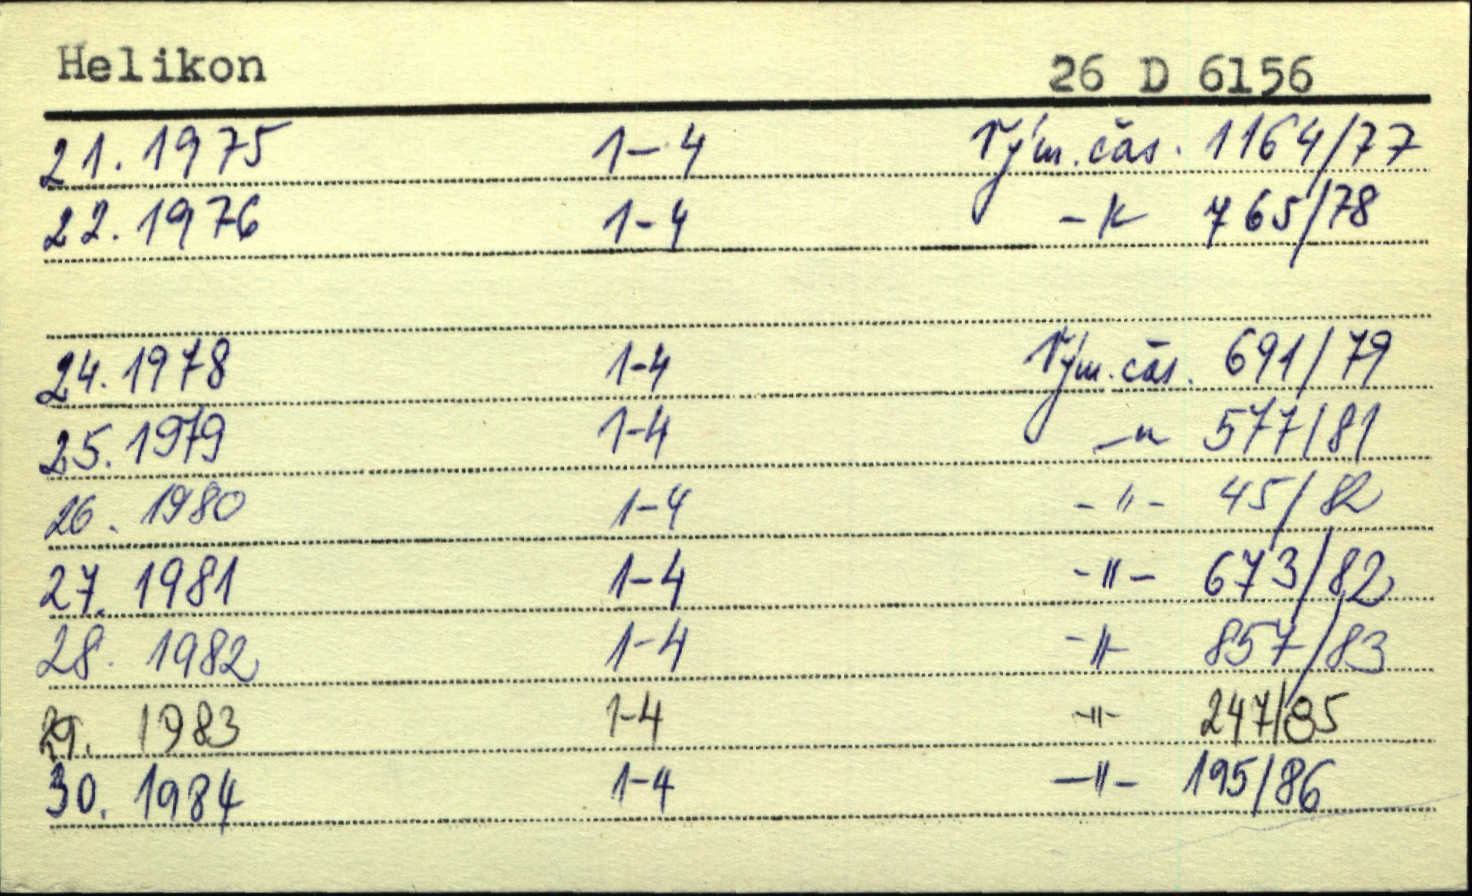 Helikon 26 D 6156
21. 1975 1-4 Vým. čas. 1164/77
22. 1976 1-4 -"- 765/78
24. 1978 1-4 Vým. čas. 691/79
25. 1979 1-4 -"- 577/81
26. 1980 1-4 -"- 45/82
27. 1981 1-4 -"- 673/82
28. 1982 1-4 -"- 857/83
29. 1983 1-4 -"- 247/85
30. 1984 1-4 -"- 195/86